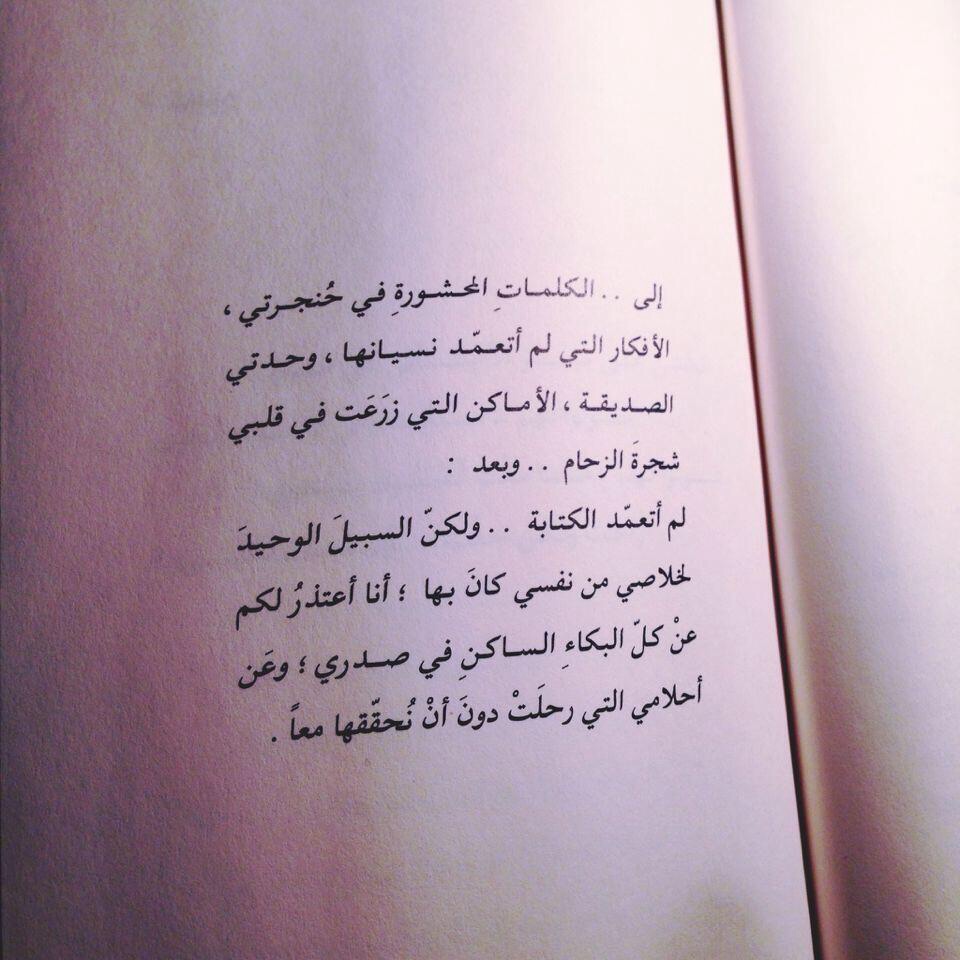 إلى .. الكلمـاتِ المحـشـورةِ فـي حُنجـرتي ،
الأفكار التي لم أتعـمّـد نـسيـانهـا ، وحـدتي
الصـديقـة ، الأمـاكن التـي زرَعَت فـي قلـبي
شجرةَ الزحام .. وبعد :
لم أتعمّد الكتابة .. ولكنّ السبيلَ الوحيدَ
لخلاصي من نفسي كانَ بـها ؛ أنا أعتذرُ لكم
عنْ كلّ البكاءِ السـاكـنِ في صـدري ؛ وعَن
أحلامي التي رحلَتْ دونَ أنْ نُحقّقها معاً .